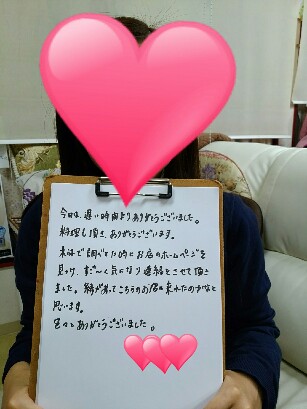 今日は、遅い時間よりありがとうございました。
料理し頂き、ありがとうございます。
来福で調べた時にお店のホームページを
見つけ、すご〜く気になり連絡とさせて頂き
ました。縁があってこちらのお店に来れたのかなと
思います。
色々とありがとうございました。